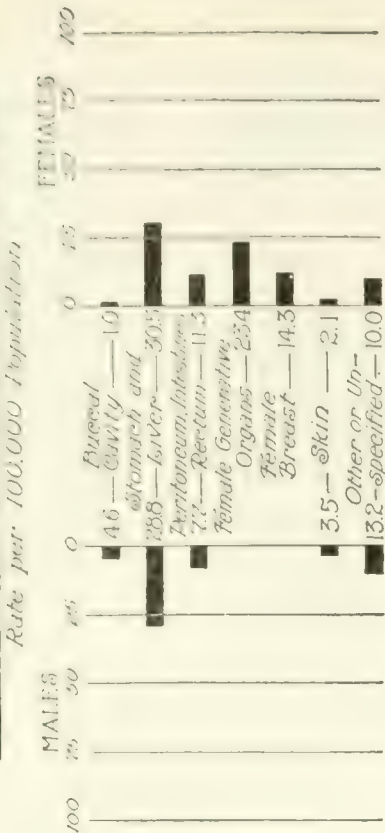 Rate per 100,000 Population
MALES FEMALES
100 75 50 25 0 0 25 50 75 100
Buccal
4.6 — Cavity — 1.0
Stomach and
28.8 — Liver — 30.5
Peritoneum, Intestines
7.7 — Rectum — 11.3
Female Generative
Organs — 23.4
Female
Breast — 14.3
3.5 — Skin — 2.1
Other or Un-
13.2 — Specified — 10.0